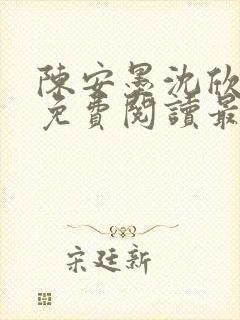 陳安墨沈欣
免費閱讀最
宋廷新